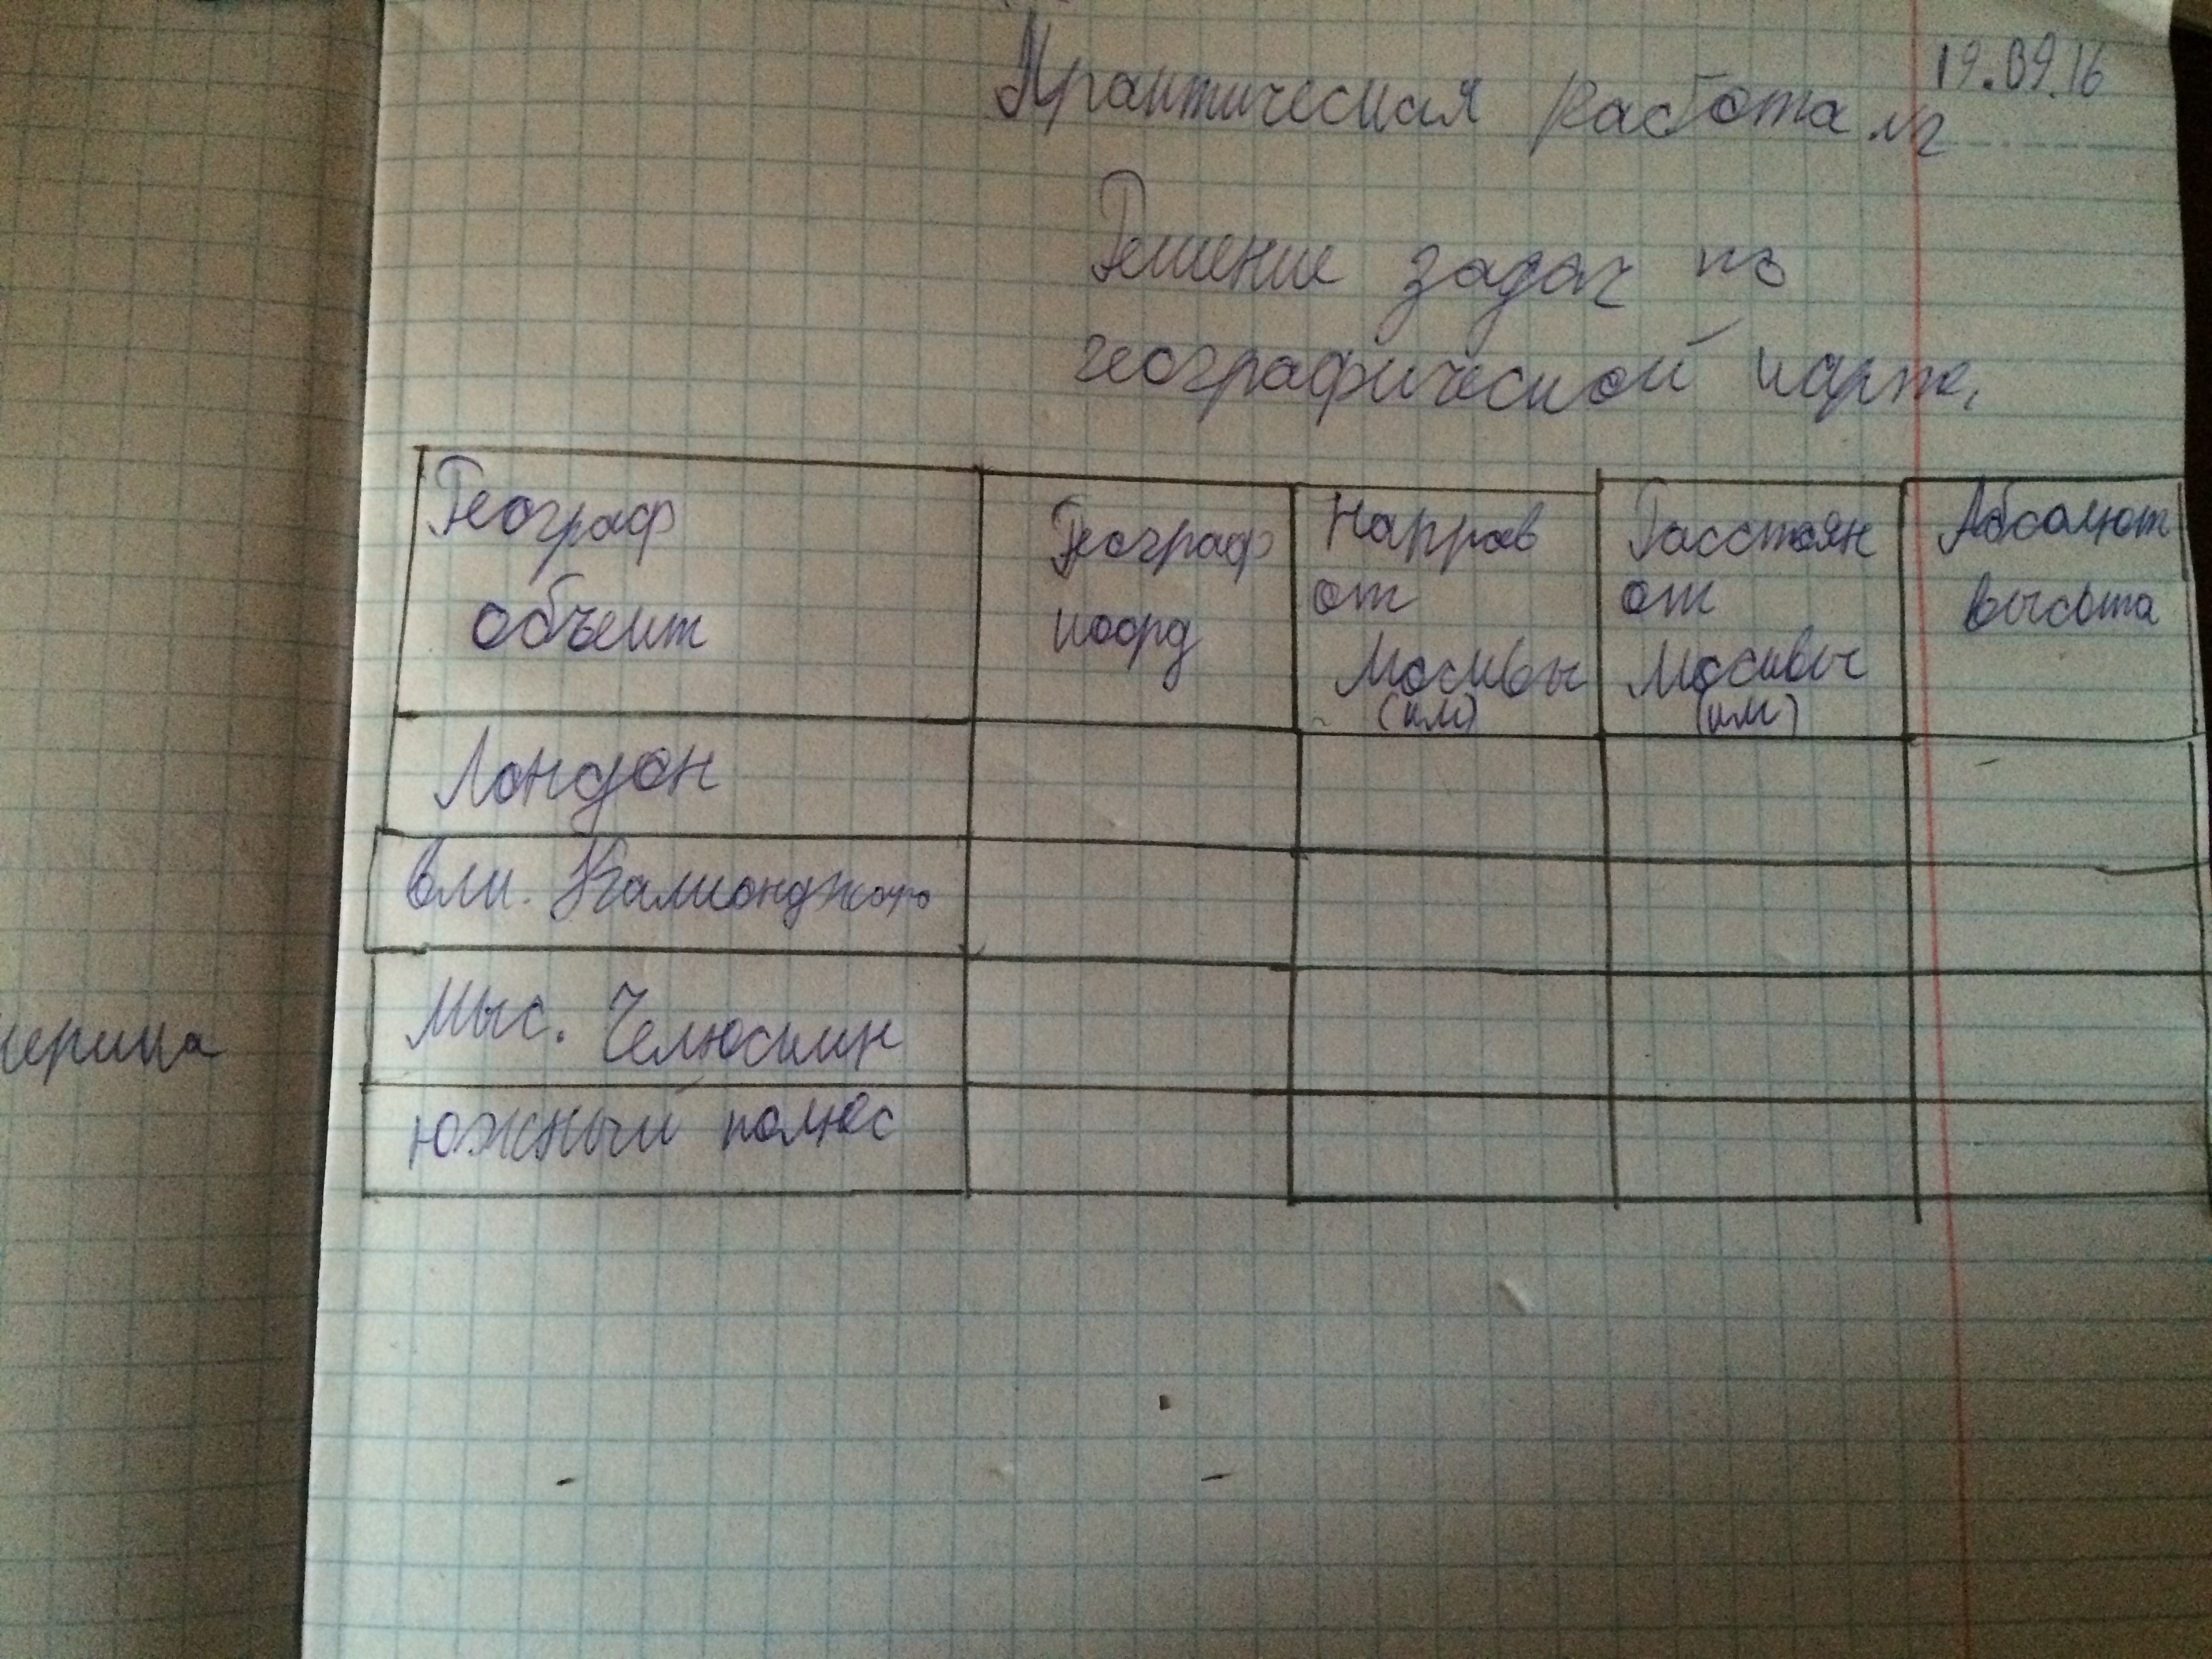 19.09.16
Практическая работа №2
Решение задач по
географической карте.
Географ
объект
Географ
коорд
Направ
от
Москвы
(км)
Расстоян
от
Москвы
(км)
Абсолют
высота
Лондон
влк.
Мыс. Челюскин
южный полюс